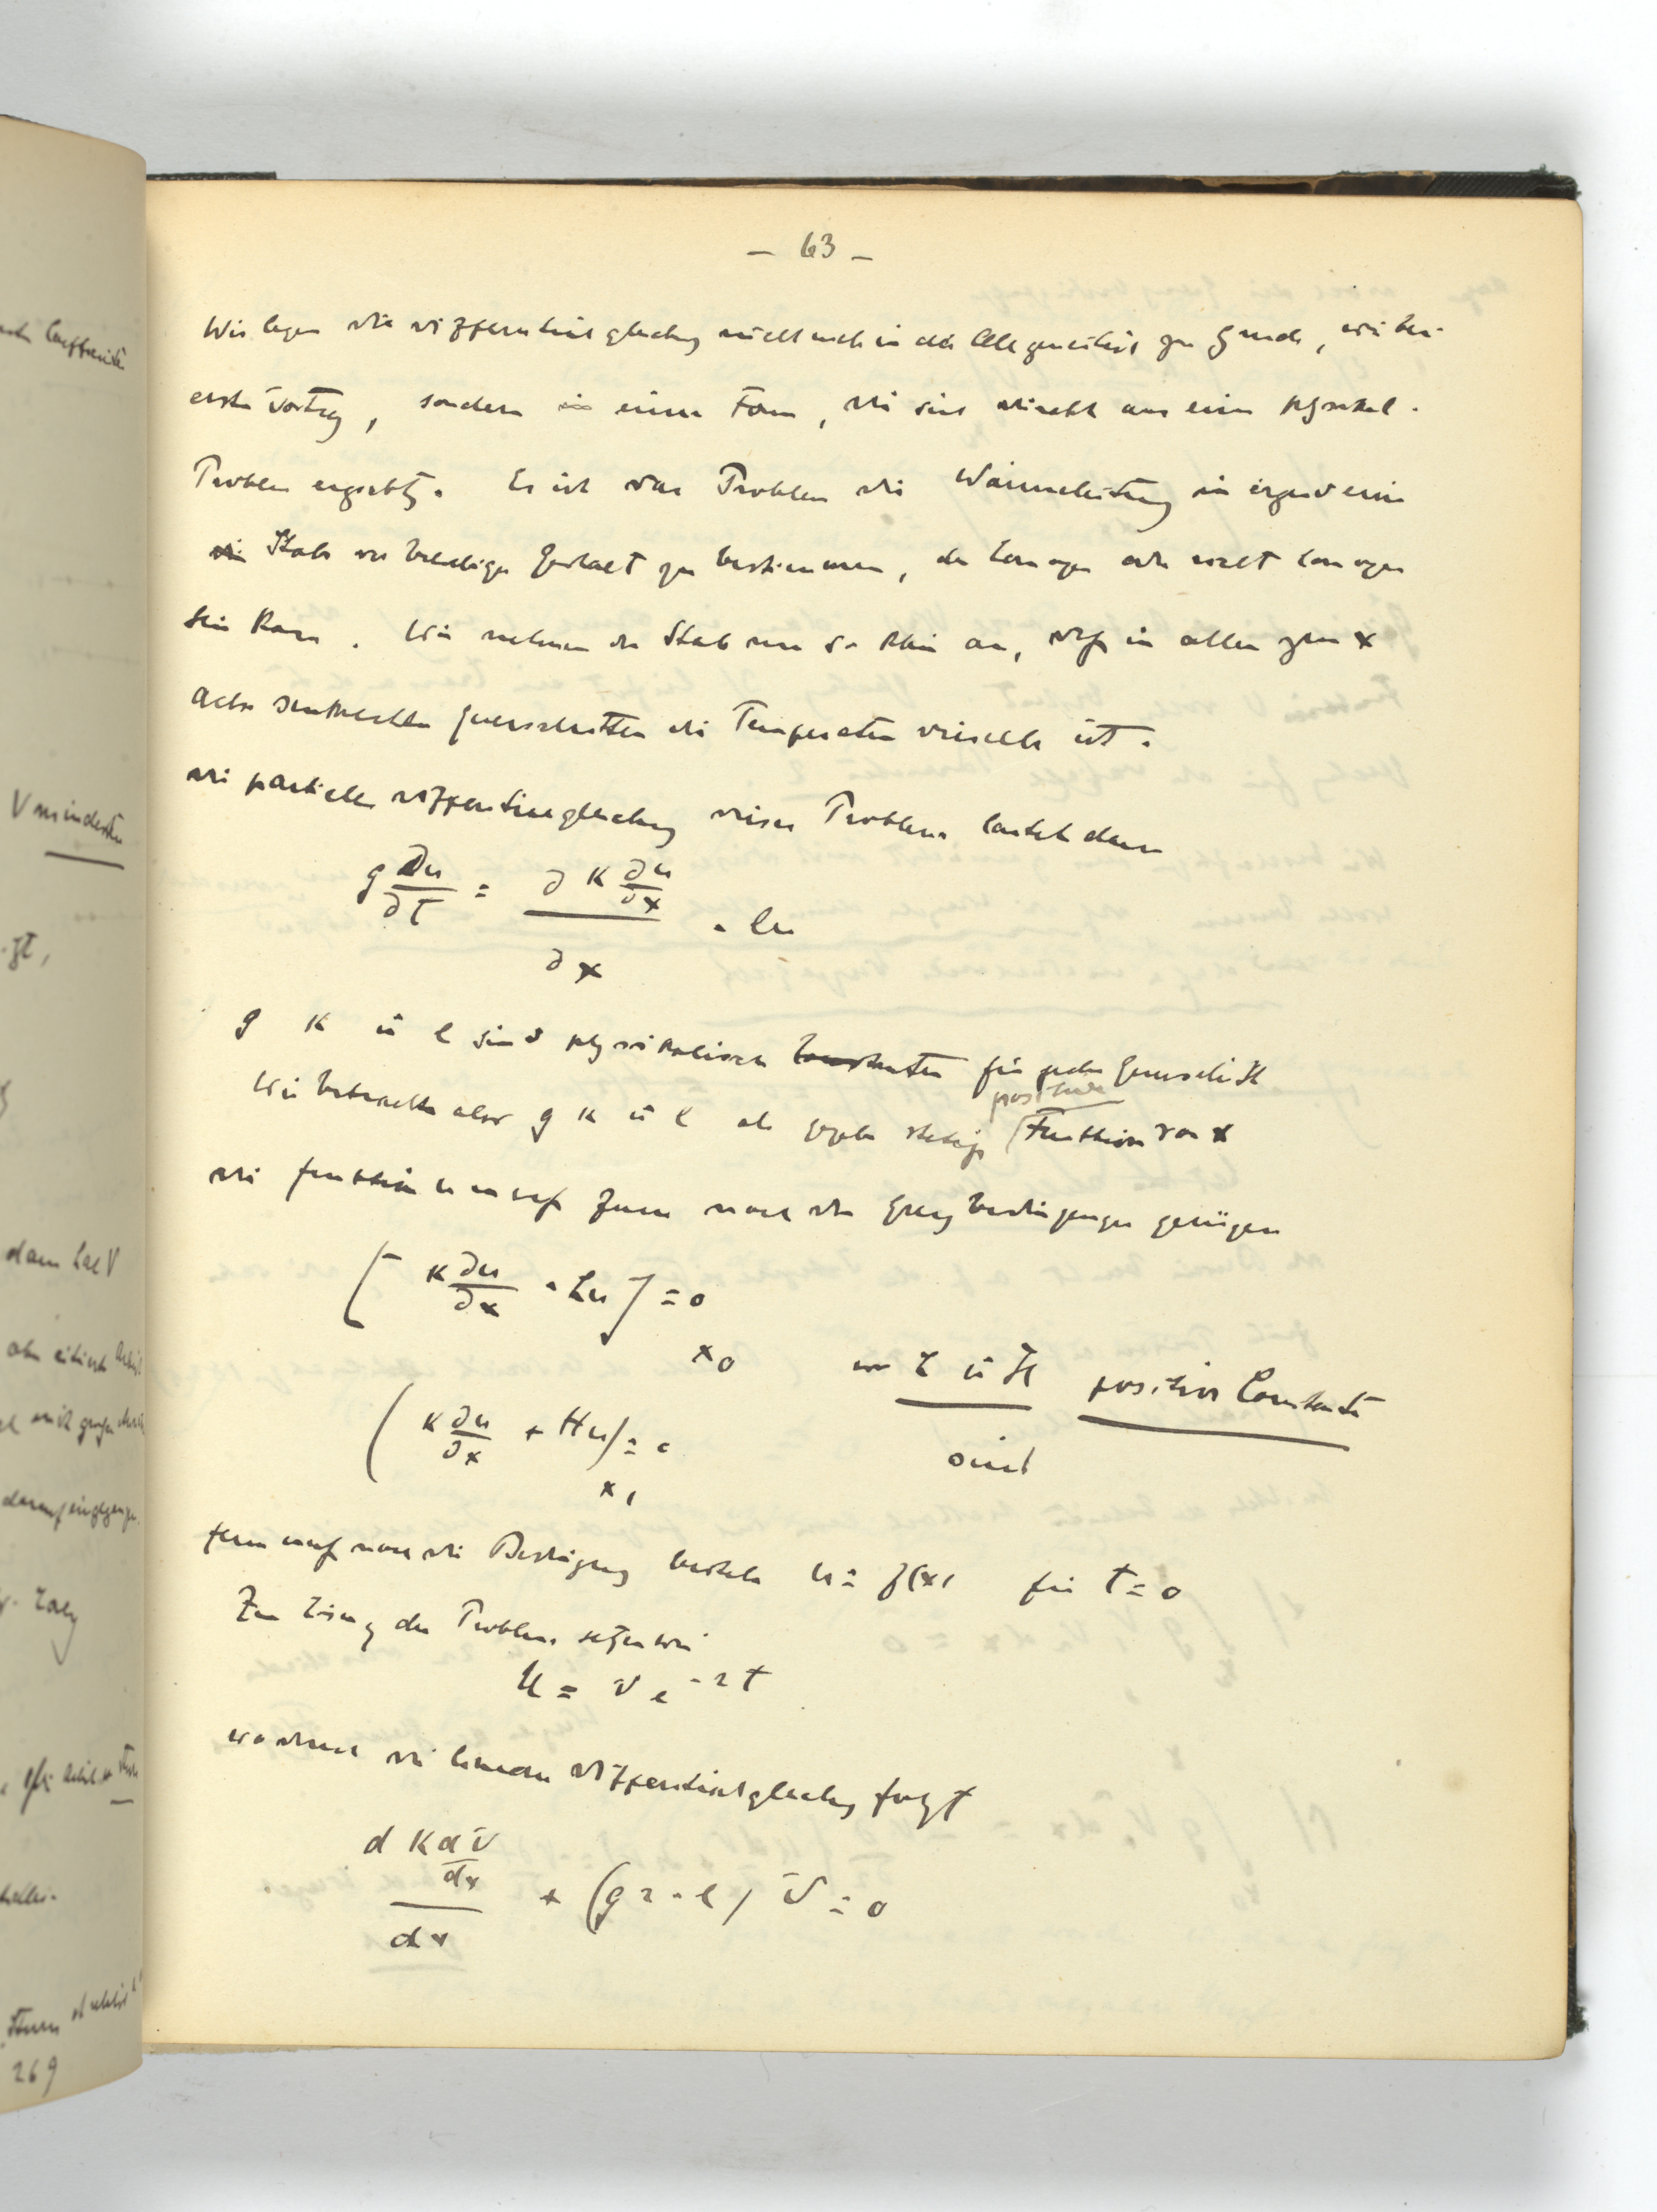 - 63 -
Wir legen die Differentialgleichung nicht mehr in der Allgemeinheit zu Grunde, wie bei
ersten Vortrag, sondern in einer Form, die sich direkt aus einem physikal.
Problem ergiebt. Es ist das Problem die Wärmeleitung in irgend einem
Stabe von beliebiger Gestalt zu bestimmen, der homogen oder nicht homogen
sein kann. Wir nehmen den Stab nun so klein an, daß in allen zur x
Achse senkrechten Querschnitten die Temperatur dieselbe ist.
Die partielle Differentialgleichung dieses Problems lautet dann
g ∂u/∂t = ∂ K ∂u/∂x / ∂x - lu
g K u l sind physikalische Constanten für jeden Querschnitt
positive
Wir betrachten aber g K u l als gegebene stetige Funktion von x
Die Funktion u muß ferner noch den Grenzbedingungen genügen
[K ∂u/∂x - hu] = 0
x0
wo h u H positive Constanten
(K ∂u/∂x + Hu) = 0
x1
sind
ferner muß noch die Bedingung bestehen u = f(x) für t = 0
Zur Lösung des Problems setzen wir
u = V e^-rt
woraus die lineare Differentialgleichung folgt
d K dV/dx / dx + (gr - l) V = 0
V mindestens
dann hat V
269